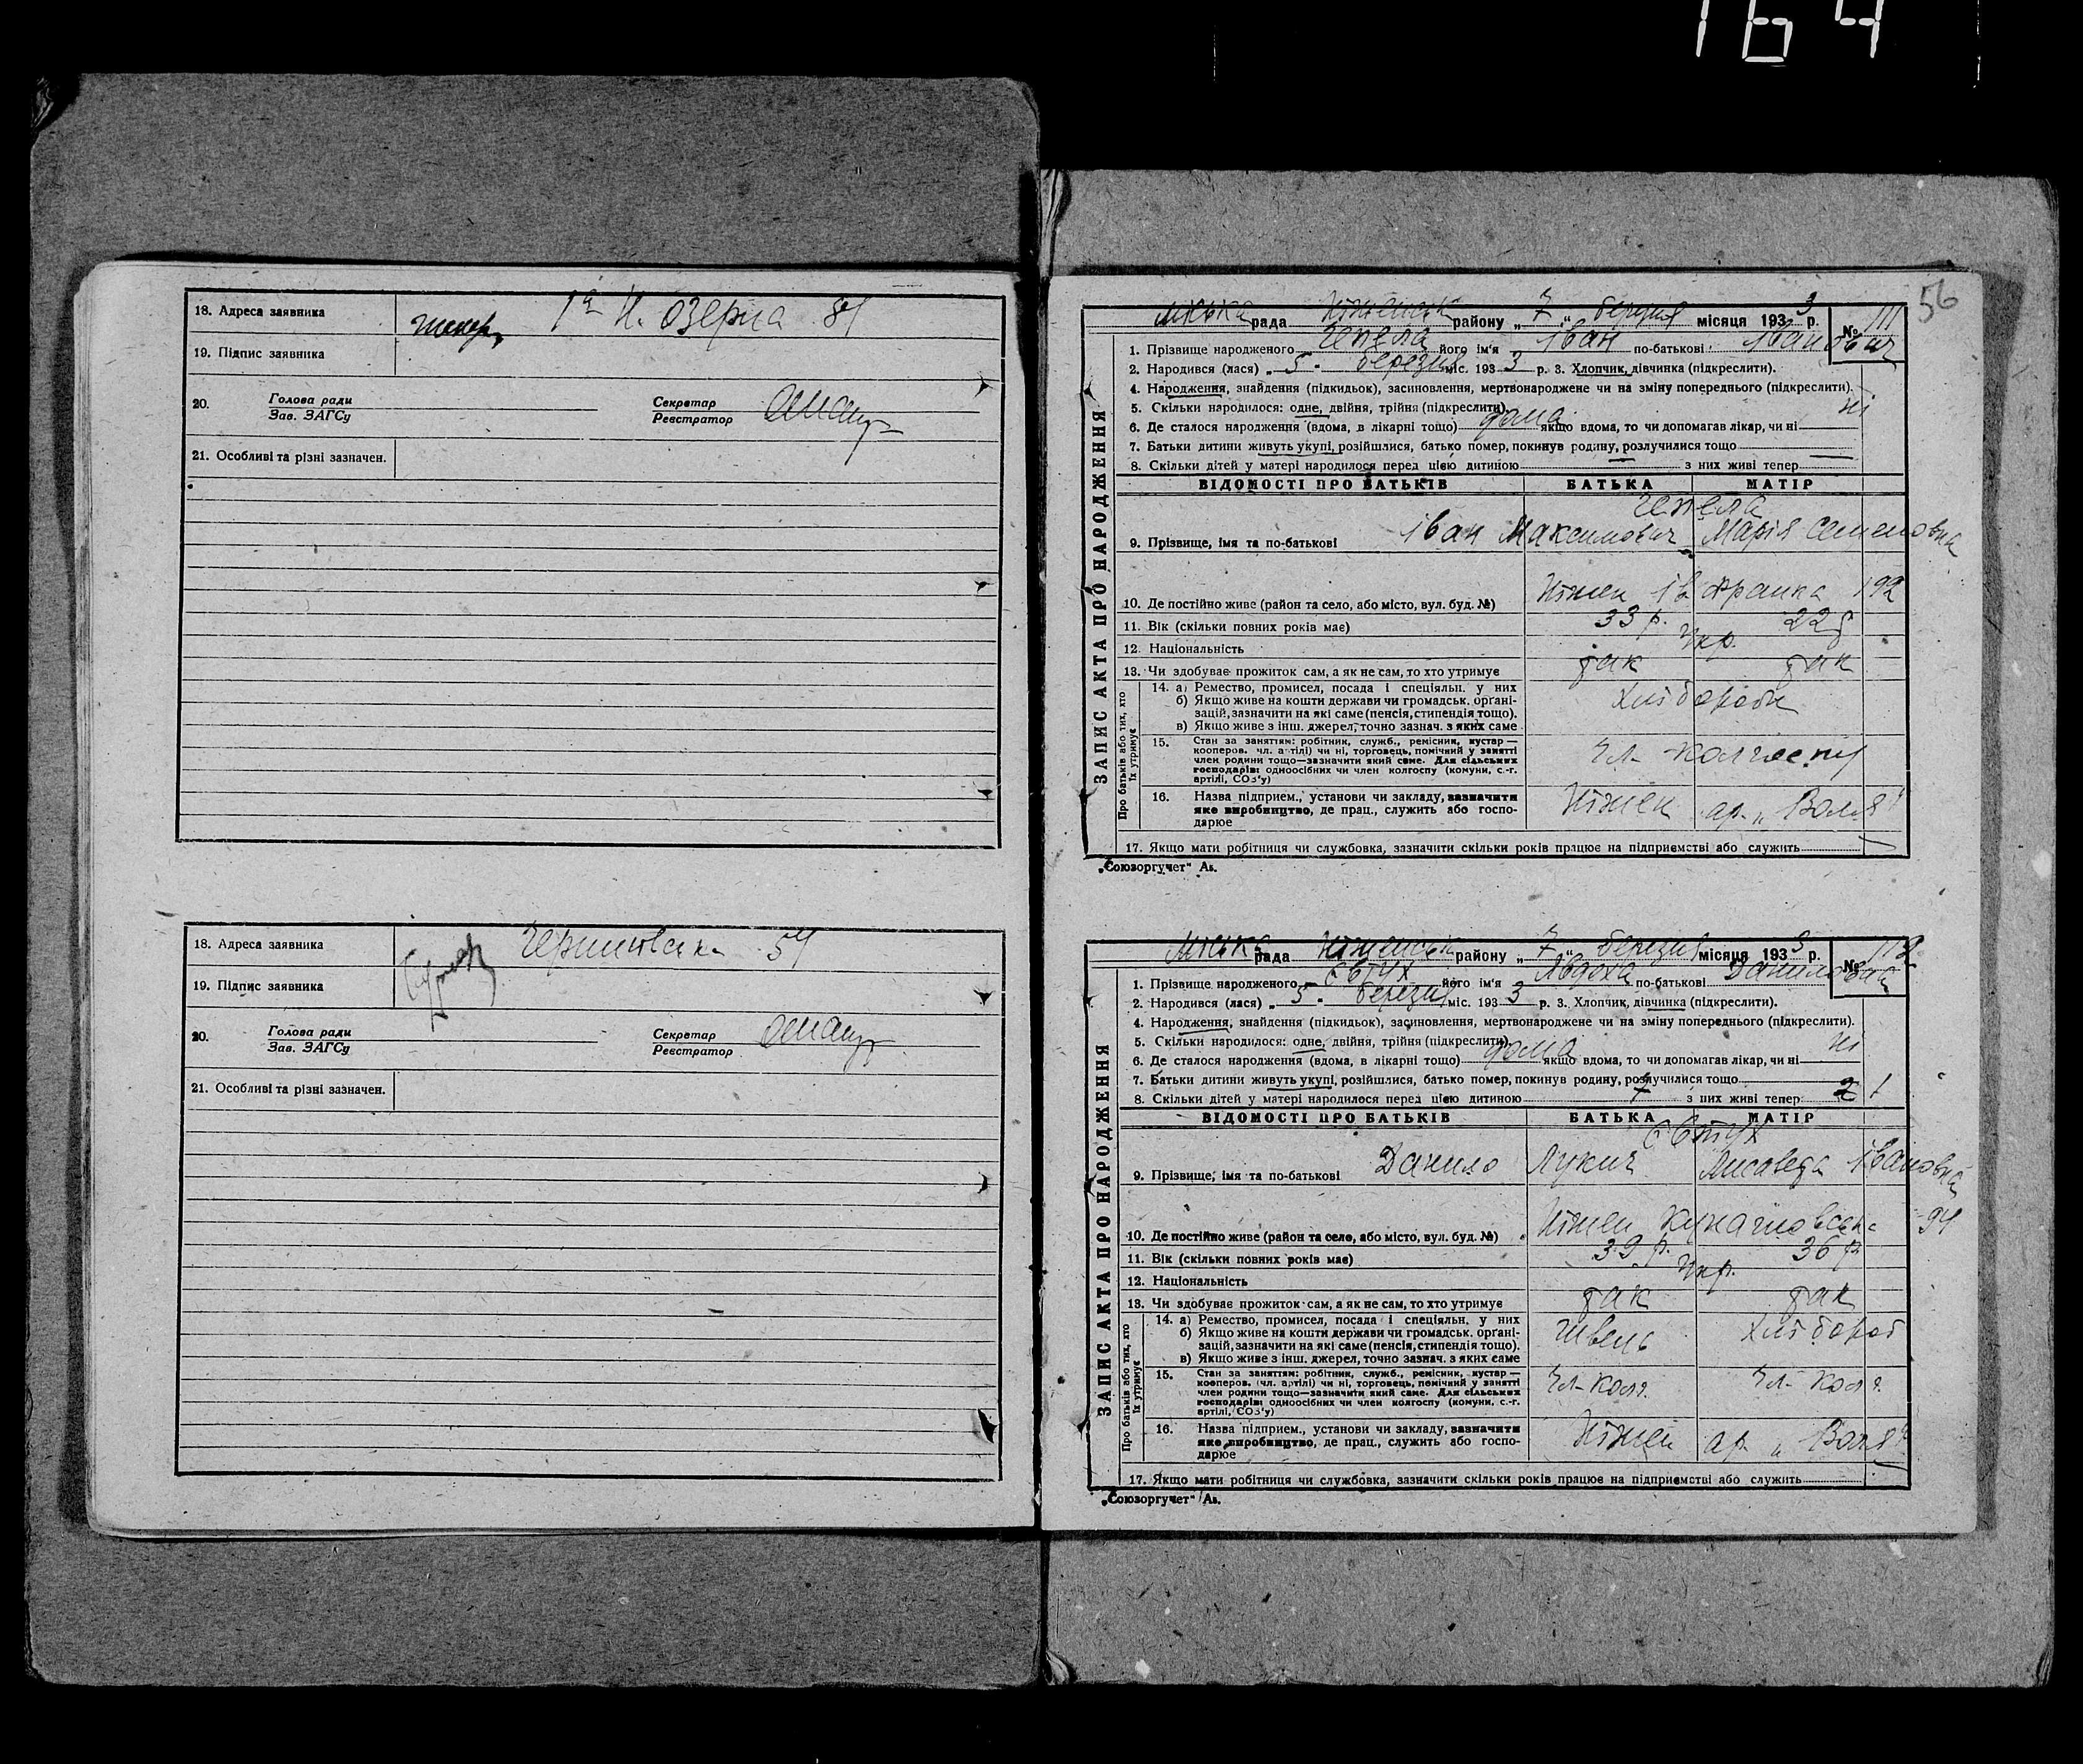 164
18. Адреса заявника 1а Н. Озерна 84
19. Підпис заявника
20. Голова ради Секретар
Зав. ЗАГСу Реєстратор
21. Особливі та різні зазначен.
18. Адреса заявника 54
19. Підпис заявника
20. Голова ради Секретар
Зав. ЗАГСу Реєстратор
21. Особливі та різні зазначен.
56
ЗАПИС АКТА ПРО НАРОДЖЕННЯ
Міська рада Ніженськ району „7“ березня місяця 1933 р. № 111
1. Прізвище народженого Чепела його ім'я Іван по-батькові Іванович
2. Народився (лася) „5“ березня міс. 1933 р. 3. Хлопчик, дівчинка (підкреслити).
4. Народження, знайдення (підкидьок), засиновлення, мертвонароджене чи на зміну попереднього (підкреслити).
5. Скільки народилося: одне, двійня, трійня (підкреслити)
6. Де сталося народження (вдома, в лікарні тощо) дома якщо вдома, то чи допомагав лікар, чи ні ні
7. Батьки дитини живуть укупі, розійшлися, батько помер, покинув родину, розлучилися тощо
8. Скільки дітей у матері народилося перед цією дитиною з них живі тепер
ВІДОМОСТІ ПРО БАТЬКІВ БАТЬКА МАТІР
Чепела
9. Прізвище, імя та по-батькові Іван Максимович Марія Семеновна
10. Де постійно живе (район та село, або місто, вул. буд. №) Ніжен Ів Франка 192
11. Вік (скільки повних років має) 33 р. 22 р
12. Національність Укр.
13. Чи здобуває прожиток сам, а як не сам, то хто утримує так так
Про батьків або тих, хто їх утримує
14. а) Ремество, промисел, посада і спеціяльн. у них Хліборобы
б) Якщо живе на кошти держави чи громадськ. організацій, зазначити на які саме (пенсія, стипендія тощо).
в) Якщо живе з інш. джерел, точно зазнач. з яких саме
15. Стан за заняттям: робітник, служб., ремісник, кустар — кооперов. (чл. артілі) чи ні, торговець, помічний у занятті член родини тощо—зазначити який саме. Для сільських господарів: одноосібних чи член колгоспу (комуни, с.-г. артілі, СОЗ'у) Чл. колгоспу
16. Назва підприєм., установи чи закладу, зазначити яке виробництво, де прац., служить або господарює Ніжен ар. „Воля“
17. Якщо мати робітниця чи службовка, зазначити скільки років працює на підприємстві або служить
„Союзоргучет“ Ав.
ЗАПИС АКТА ПРО НАРОДЖЕННЯ
Міська рада Ніженськ району „7“ березня місяця 1933 р. № 112
1. Прізвище народженого Євтух його ім'я Явдоха по-батькові Даниловна
2. Народився (лася) „5“ березня міс. 1933 р. 3. Хлопчик, дівчинка (підкреслити).
4. Народження, знайдення (підкидьок), засиновлення, мертвонароджене чи на зміну попереднього (підкреслити).
5. Скільки народилося: одне, двійня, трійня (підкреслити)
6. Де сталося народження (вдома, в лікарні тощо) дома якщо вдома, то чи допомагав лікар, чи ні ні
7. Батьки дитини живуть укупі, розійшлися, батько помер, покинув родину, розлучилися тощо
8. Скільки дітей у матері народилося перед цією дитиною 7 з них живі тепер 1
ВІДОМОСТІ ПРО БАТЬКІВ БАТЬКА МАТІР
Євтух
9. Прізвище, імя та по-батькові Данило Лукич Лисаведа Івановна
10. Де постійно живе (район та село, або місто, вул. буд. №) Ніжен 94
11. Вік (скільки повних років має) 39 р. 36 р.
12. Національність Укр.
13. Чи здобуває прожиток сам, а як не сам, то хто утримує так так
Про батьків або тих, хто їх утримує
14. а) Ремество, промисел, посада і спеціяльн. у них Швець Хлібороб
б) Якщо живе на кошти держави чи громадськ. організацій, зазначити на які саме (пенсія, стипендія тощо).
в) Якщо живе з інш. джерел, точно зазнач. з яких саме
15. Стан за заняттям: робітник, служб., ремісник, кустар — кооперов. (чл. артілі) чи ні, торговець, помічний у занятті член родини тощо—зазначити який саме. Для сільських господарів: одноосібних чи член колгоспу (комуни, с.-г. артілі, СОЗ'у) Чл. колг. Чл. колг.
16. Назва підприєм., установи чи закладу, зазначити яке виробництво, де прац., служить або господарює Ніжен ар. „Воля“
17. Якщо мати робітниця чи службовка, зазначити скільки років працює на підприємстві або служить
„Союзоргучет“ Ав.